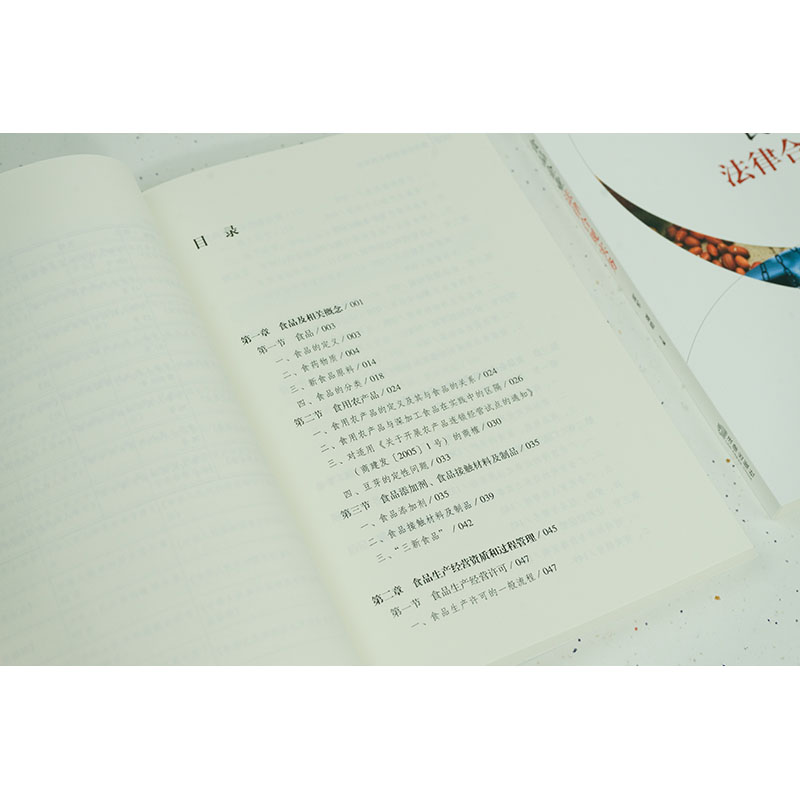 目 录
第一章 食品及相关概念/001
第一节 食品/003
一、食品的定义/003
二、食药物质/004
三、新食品原料/014
四、食品的分类/018
第二节 食用农产品/024
一、食用农产品的定义及其与食品的关系/024
二、食用农产品与深加工食品在实践中的区隔/026
三、对适用《关于开展农产品连锁经营试点的通知》
（商建发〔2005〕1号）的商榷/030
四、豆芽的定性问题/033
第三节 食品添加剂、食品接触材料及制品/035
一、食品添加剂/035
二、食品接触材料及制品/039
三、“三新食品”/042
第二章 食品生产经营资质和过程管理/045
第一节 食品生产经营许可/047
一、食品生产许可的一般流程/047
法律合